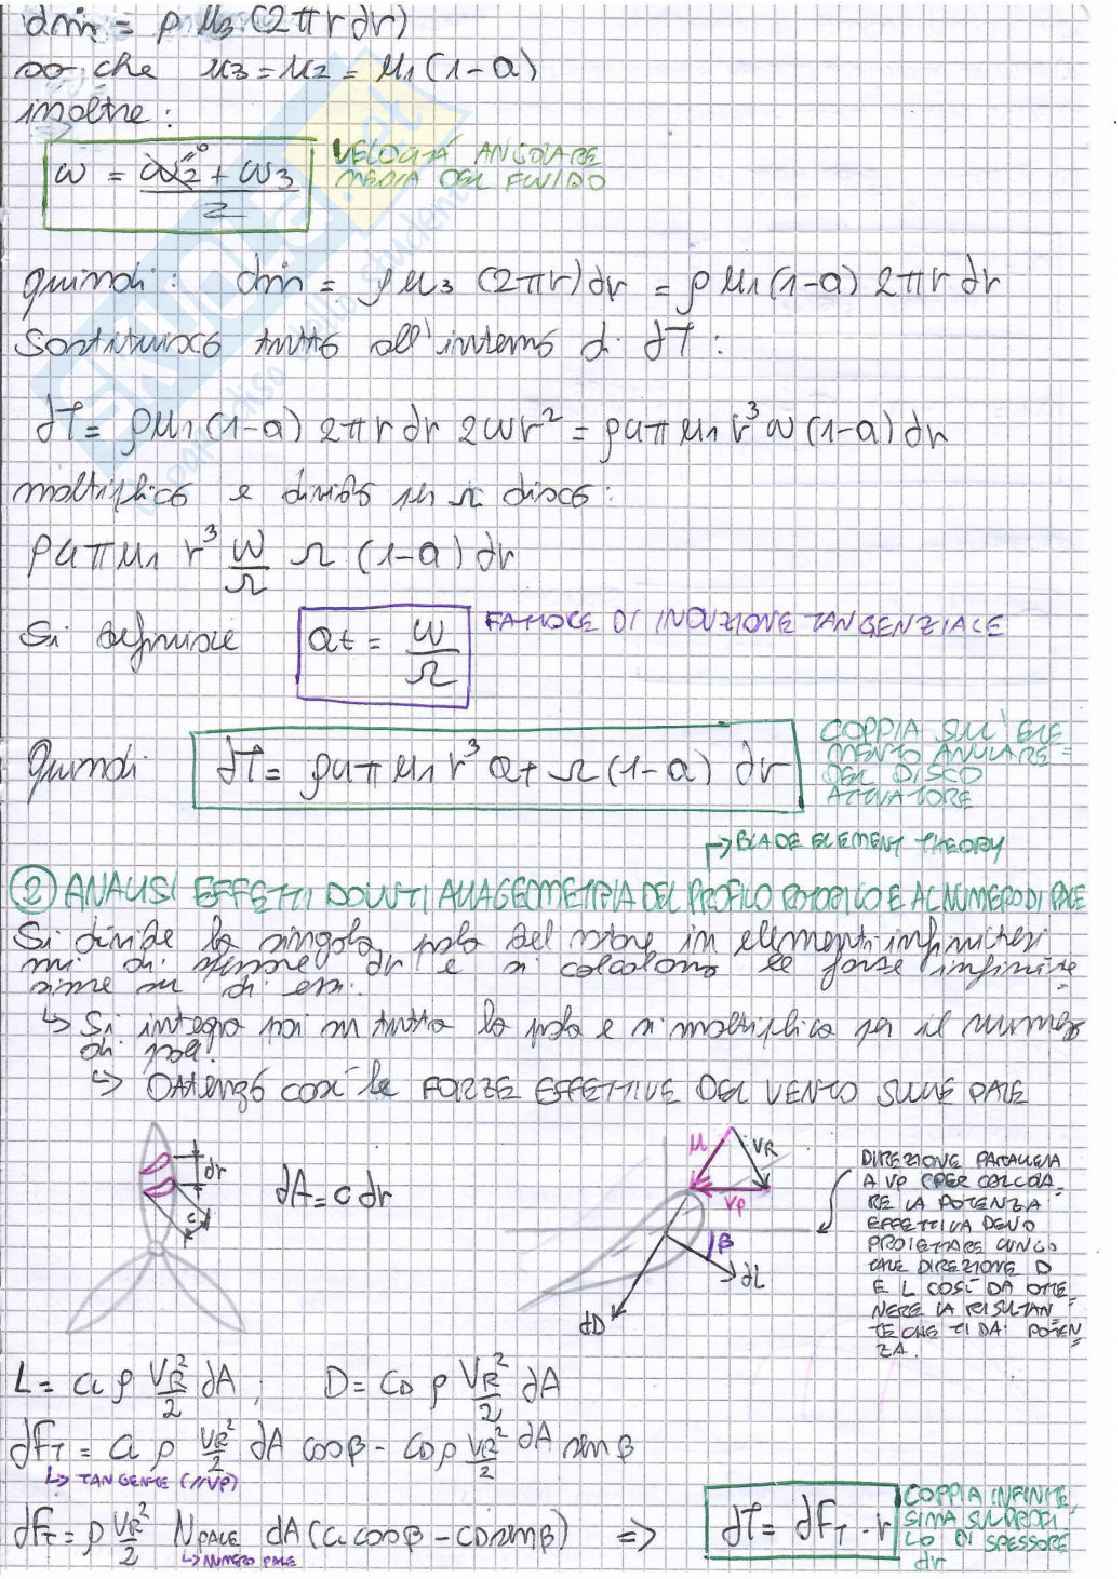 dṁ = ρ u3 (2πr dr)
so che u3 = u2 = u1 (1-a)
inoltre:
ω = (ω2 + ω3) / 2 VELOCITÀ ANGOLARE
MEDIA DEL FLUIDO
quindi: dṁ = ρ u3 (2πr) dr = ρ u1 (1-a) 2πr dr
Sostituisco tutto all'interno di dT:
dT = ρ u1 (1-a) 2πr dr 2ωr² = ρ4π u1 r³ ω (1-a) dr
moltiplico e divido per Ω disco:
ρ4π u1 r³ ω/Ω Ω (1-a) dr
Si definisce at = ω/Ω FATTORE DI INDUZIONE TANGENZIALE
Quindi dT = ρ4π u1 r³ at Ω (1-a) dr
COPPIA SULL'ELE
MENTO ANULARE
DEL DISCO
ATTUATORE
→ BLADE ELEMENT THEORY
② ANALISI EFFETTI DOVUTI ALLA GEOMETRIA DEL PROFILO ROTORICO E AL NUMERO DI PALE
Si divide la singola pala del rotore in elementi infinitesi
mi di spessore dr e si calcolano le forze infinite
sime su di essi.
↳ Si integra poi su tutta la pala e si moltiplica per il numero
di pale!
↳ Ottengo così le FORZE EFFETTIVE DEL VENTO SULLE PALE
dr
c
dA = c dr
u
VR
VP
β
dL
dD
DIREZIONE PARALLELA
A VP (PER CALCOLA
RE LA POTENZA
EFFETTIVA DEVO
PROIETTARE LUNGO
TALE DIREZIONE D
E L COSÌ DA OTTE
NERE LA RISULTAN
TE CHE TI DÀ POTEN
ZA.
L = CL ρ VR²/2 dA ; D = CD ρ VR²/2 dA
dFT = CL ρ VR²/2 dA cosβ - CD ρ VR²/2 dA senβ
↳ TANGENTE (//VP)
dFT = ρ VR²/2 NPALE dA (CL cosβ - CD senβ) ⇒ dT = dFT · r
↳ NUMERO PALE
COPPIA INFINITE
SIMA SUL PROFI
LO DI SPESSORE
dr